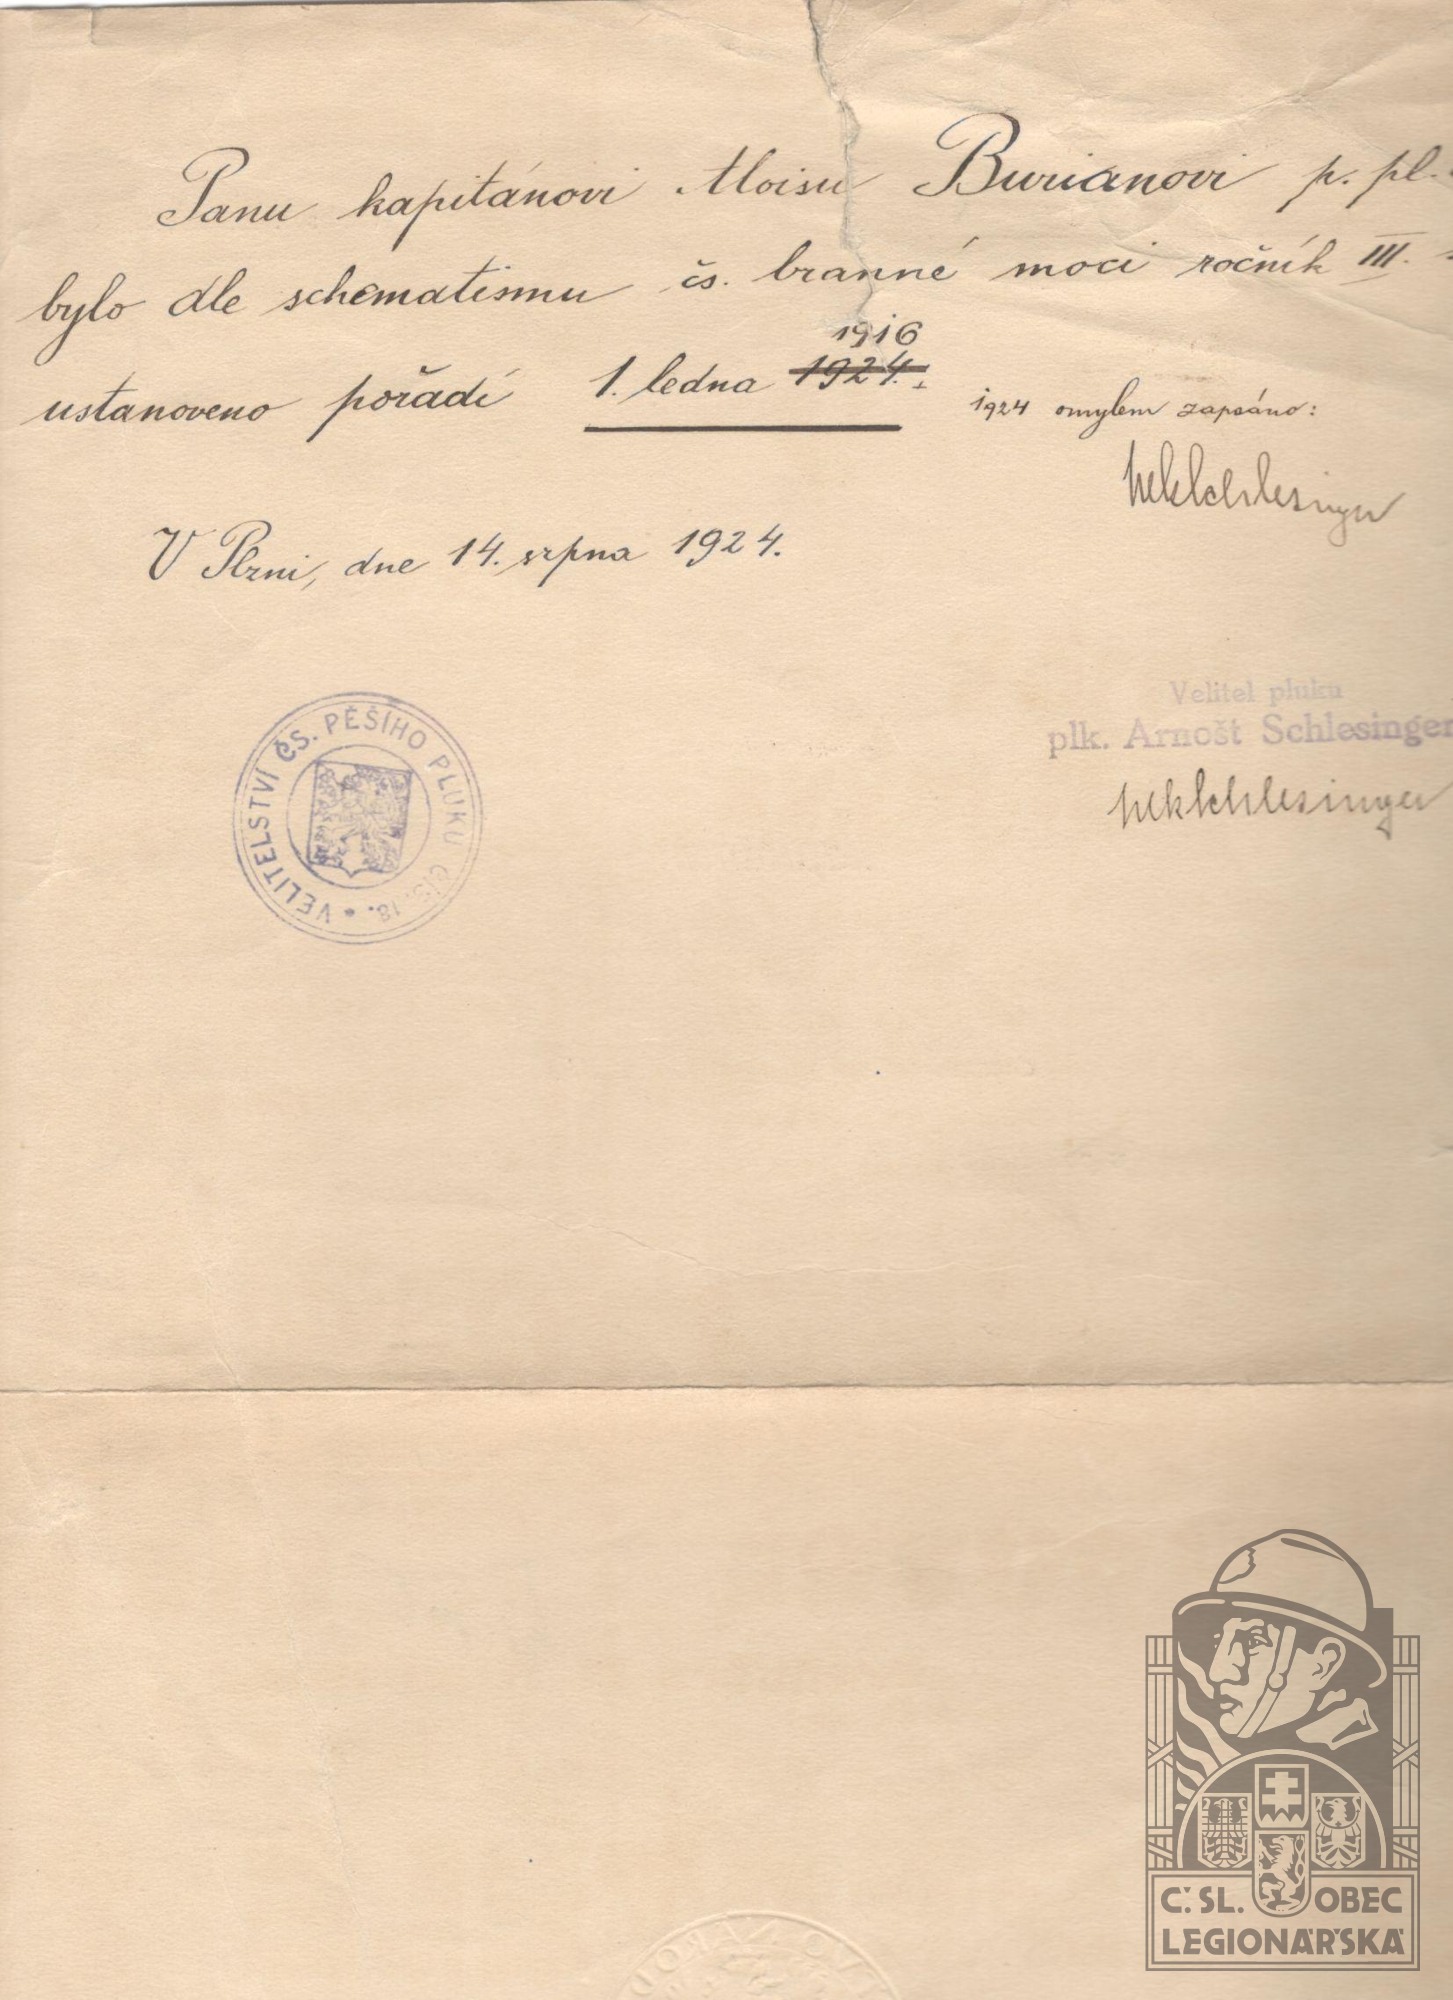 Panu kapitánovi Aloisu Burianovi p. pl.
bylo dle schematismu čs. branné moci ročník III.
1916
ustanoveno pořadí 1. ledna 1924.
1924 omylem zapsáno:
Schlesinger
V Plzni, dne 14. srpna 1924.
VELITELSTVÍ ČS. PĚŠÍHO PLUKU ČÍS. 18.
Velitel pluku
plk. Arnošt Schlesinger
Schlesinger
Č. SL. OBEC
LEGIONÁŘSKÁ